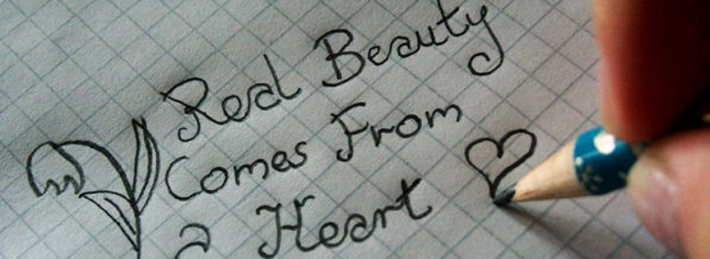 Real Beauty
Comes From
a Heart